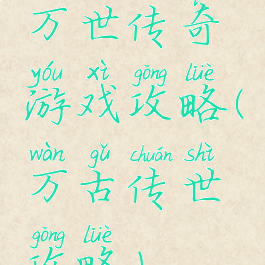 万世传奇
yóu xì gōng lüè
游戏攻略(
wàn gǔ chuán shì
万古传世
gōng lüè
攻略)